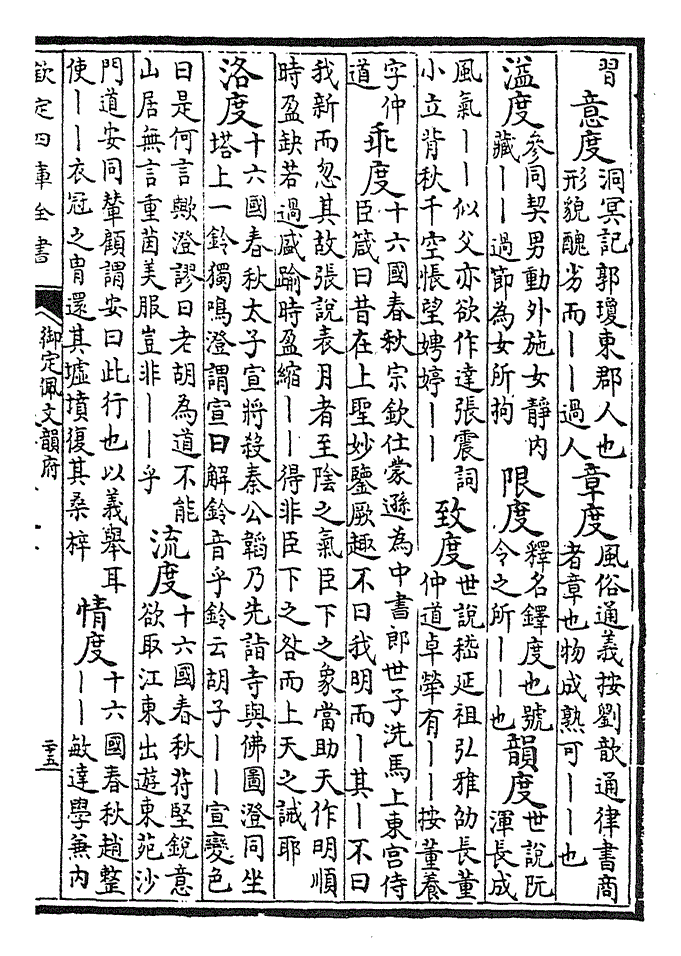 習 意度 洞冥記郭瓊東郡人也形貌醜劣而丨丨過人 章度 風俗通義按劉歆通律書商者章也物成熟可丨丨也
溢度 參同契男動外施女靜内藏丨丨過節為女所拘 限度 釋名鐸度也號令之所丨丨也 韻度 世說阮渾長成
風氣丨丨似父亦欲作達張震詞小立背秋千空悵望娉婷丨丨 致度 世說嵇延祖弘雅劭長董仲道卓犖有丨丨按董養
字仲道 乖度 十六國春秋宗欽仕蒙遜為中書郎世子洗馬上東宮侍臣箴曰昔在上聖妙鑒厥趣不曰我明而丨其丨不曰
我新而忽其故張說表月者至陰之氣臣下之象當助天作明順時盈缺若過盛踰時盈縮丨丨得非臣下之咎而上天之誡耶
洛度 十六國春秋太子宣將殺秦公韜乃先詣寺與佛圖澄同坐塔上一鈴獨鳴澄謂宣曰解鈴音乎鈴云胡子丨丨宣變色
曰是何言歟澄謬曰老胡為道不能山居無言重茵美服豈非丨丨乎 流度 十六國春秋苻堅銳意欲取江東出遊東苑沙
門道安同輦顧謂安曰此行也以義舉耳使丨丨衣冠之胄還其墟墳復其桑梓 情度 十六國春秋趙整丨丨敏達學兼内
欽定四庫全書 御定佩文韻府 二十五